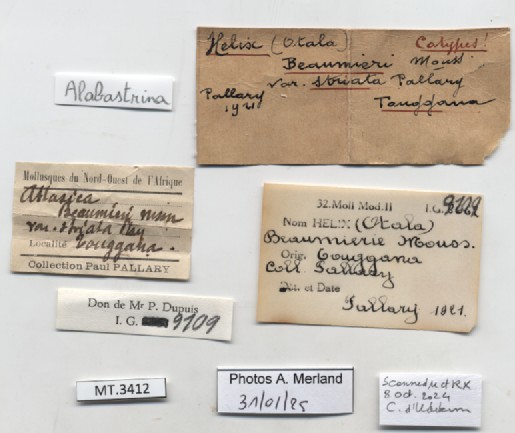 Alabastrina
Helix (Otala) Cotypes!
Beaumieri Mouss
var. striata Pallary
Pallary
1921
Touggana
Mollusques du Nord-Ouest de l'Afrique
Atlasica
Beaumieri
var. striata
Localité Touggana.
Collection Paul PALLARY
32. Moll Mod. II I.G.
Nom HELIX (Otala)
Beaumierie Mouss.
Orig. Touggana
Coll. Pallary
Det. et Date
Pallary 1921.
Don de Mr P. Dupuis
I. G. 9109
MT.3412
Photos A. Merland
31/01/25
Scanned
8 oct. 2024